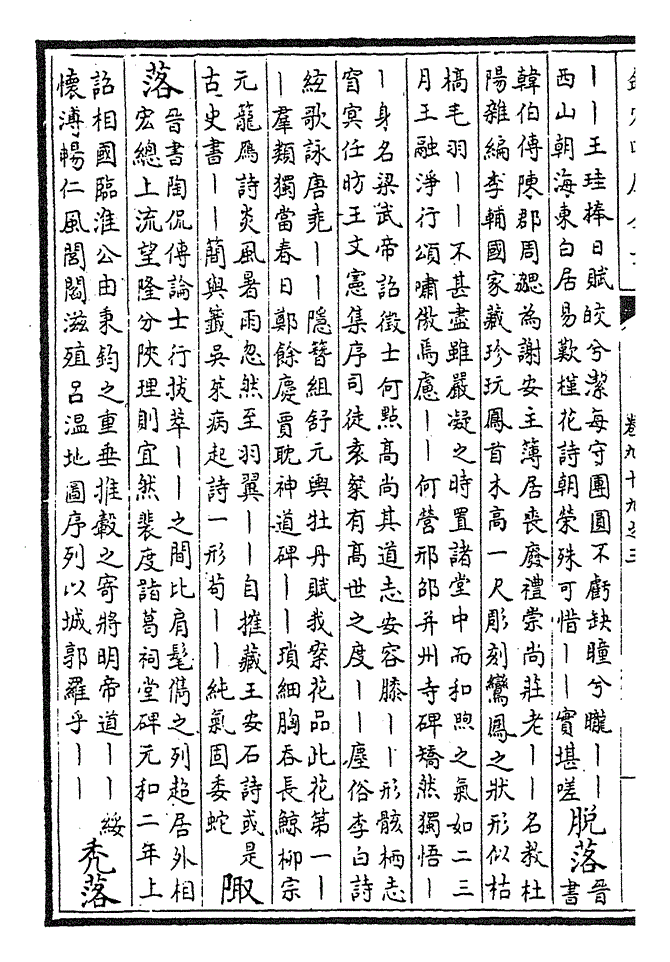 卷九十九之三
丨丨王珪捧日賦皎兮潔每守團圓不虧缺瞳兮曨丨丨
西山朝海東白居易歎槿花詩朝榮殊可惜丨丨實堪嗟
脫落晉書
韓伯傳陳郡周勰為謝安主簿居喪廢禮崇尚莊老丨丨名教杜
陽雜編李輔國家藏珍玩鳳首木高一尺彫刻鸞鳳之狀形似枯
槁毛羽丨丨不甚盡雖嚴凝之時置諸堂中而和煦之氣如二三
月王融淨行頌嘯傲焉慮丨丨何營邢邵并州寺碑矯然獨悟丨
丨身名梁武帝詔徵士何點高尚其道志安容膝丨丨形骸栖志
窅冥任昉王文憲集序司徒袁粲有高世之度丨丨塵俗李白詩
絃歌詠唐堯丨丨隱簪組舒元輿牡丹賦我案花品此花第一丨
丨羣類獨當春日鄭餘慶賈耽神道碑丨丨瑣細胸吞長鯨柳宗
元籠鷹詩炎風暑雨忽然至羽翼丨丨自摧藏王安石詩或是
古史書丨丨簡與籤吳萊病起詩一形苟丨丨純氣固委蛇
陬
落
晉書陶侃傳論士行拔萃丨丨之間比肩髦儁之列超居外相
宏總上流望隆分陝理則宜然裴度諸葛祠堂碑元和二年上
詔相國臨淮公由秉鈞之重垂推轂之寄將明帝道丨丨綏
懷溥暢仁風閭閻滋殖呂溫地圖序列以城郭羅乎丨丨
禿落